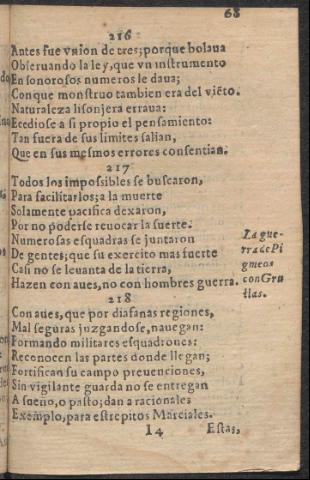 68
216
Antes fue vnion de tres; porque bolaua
Obseruando la ley, que vn instrumento
En sonorosos numeros le daua;
Con que monstruo tambien era del viẽto.
Naturaleza lisonjera erraua:
Ecediose a si propio el pensamiento:
Tan fuera de sus limites salian,
Que en sus mesmos errores consentian.
217
Todos los impossibles se buscaron,
Para facilitarlos; a la muerte
Solamente pacifica dexaron,
Por no poderse reuocar la suerte.
Numerosas esquadras se juntaron
De gentes; que su exercito mas fuerte
Casi no se leuanta de la tierra,
Hazen con aues, no con hombres guerra.
La gue-
rra de Pi
gmeos
con Gru
llas.
218
Con aues, que por diafanas regiones,
Mal seguras juzgandose, nauegan:
Formando militares esquadrones:
Reconocen las partes donde llegan;
Fortifican su campo preuenciones,
Sin vigilante guarda no se entregan
A sueño, o pasto; dan a racionales
Exemplo, para estrepitos Marciales.
I4 Estas,